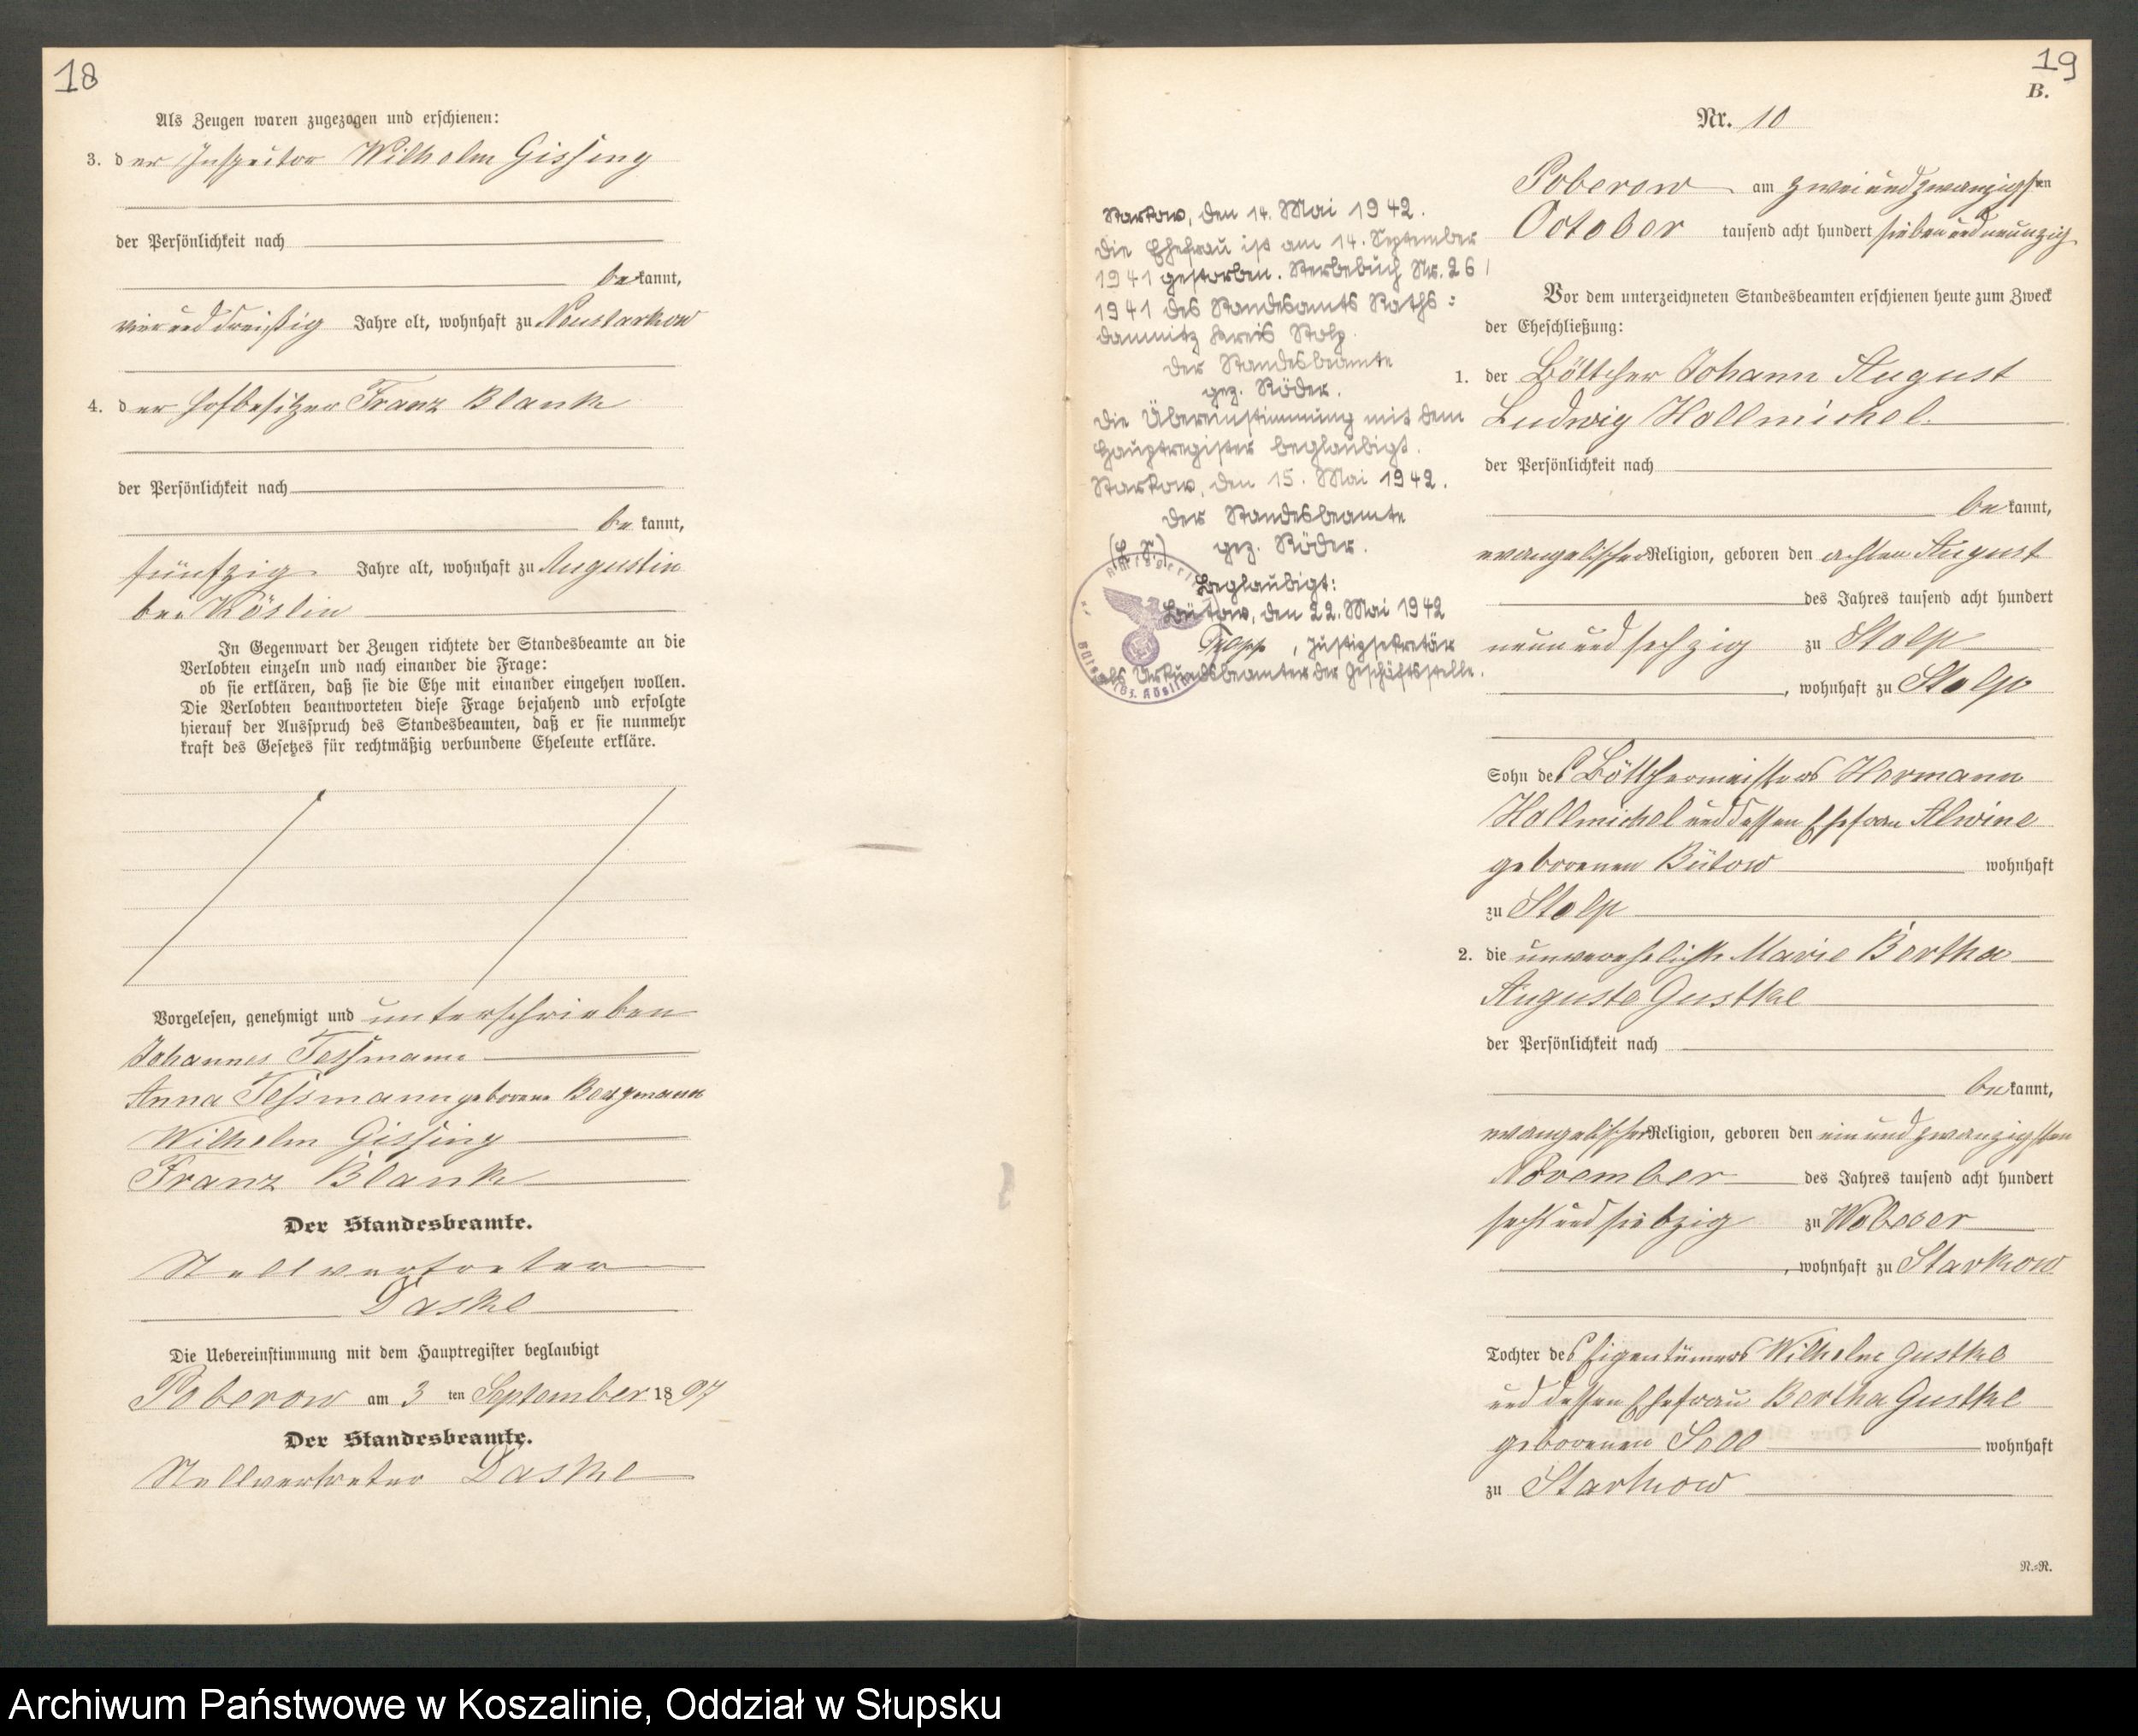 18
Als Zeugen waren zugezogen und erschienen:
3. der Inspector Wilhelm Gissing
der Persönlichkeit nach
bekannt,
vierunddreißig Jahre alt, wohnhaft zu Neustarkow
4. der Hofbesitzer Franz Blank
der Persönlichkeit nach
bekannt,
fünfzig Jahre alt, wohnhaft zu Augustin
bei Köslin
In Gegenwart der Zeugen richtete der Standesbeamte an die
Verlobten einzeln und nach einander die Frage:
ob sie erklären, daß sie die Ehe mit einander eingehen wollen.
Die Verlobten beantworteten diese Frage bejahend und erfolgte
hierauf der Ausspruch des Standesbeamten, daß er sie nunmehr
kraft des Gesetzes für rechtmäßig verbundene Eheleute erkläre.
Vorgelesen, genehmigt und unterschrieben
Johannes Tessmann
Anna Tessmann geborene Bergmann
Wilhelm Gissing
Franz Blank
Der Standesbeamte.
Stellvertreter
Daske
Die Uebereinstimmung mit dem Hauptregister beglaubigt
Poberow am 3 ten September 1897
Der Standesbeamte.
Stellvertreter Daske
19
B.
Nr. 10
Starkow, den 14. Mai 1942.
Die Ehefrau ist am 14. September
1941 gestorben. Sterbebuch Nr. 26/
1941 des Standesamts Raths=
damnitz Kreis Stolp.
Der Standesbeamte
gez. Röder.
Die Übereinstimmung mit dem
Hauptregister beglaubigt.
Starkow, den 15. Mai 1942.
Der Standesbeamte
(L. S.) gez. Röder.
Beglaubigt:
Bütow, den 22. Mai 1942
, Justizsekretär
als Urkundsbeamter der Geschäftsstelle.
Poberow am zweiundzwanzigsten
October tausend acht hundert siebenundneunzig
Vor dem unterzeichneten Standesbeamten erschienen heute zum Zweck
der Eheschließung:
1. der Böttcher Johann August
Ludwig Hollmichel
der Persönlichkeit nach
bekannt,
evangelischer Religion, geboren den achten August
des Jahres tausend acht hundert
neunundsechzig zu Stolp
, wohnhaft zu Stolp
Sohn des Böttchermeisters Hermann
Hollmichel und dessen Ehefrau Alwine
geborenen Bütow wohnhaft
zu Stolp
2. die unverehelichte Marie Bertha
Auguste Gustke
der Persönlichkeit nach
bekannt,
evangelischer Religion, geboren den einundzwanzigsten
November des Jahres tausend acht hundert
sechsundsiebzig zu Wobeser
, wohnhaft zu Starkow
Tochter des Eigentümers Wilhelm Gustke
und dessen Ehefrau Bertha Gustke
geborenen Sell wohnhaft
zu Starkow
N.=N.
Archiwum Państwowe w Koszalinie, Oddział w Słupsku